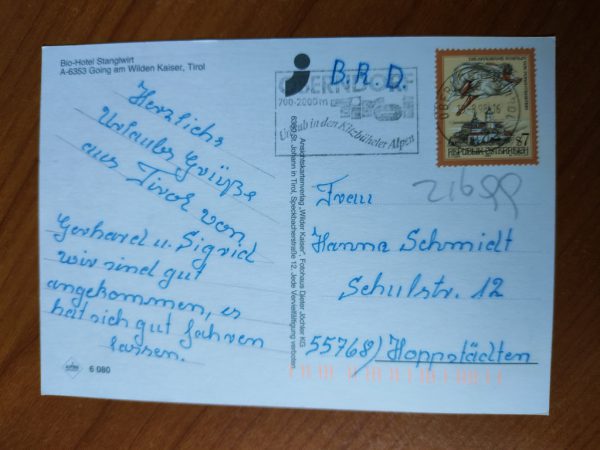 Bio-Hotel Stanglwirt
A-6353 Going am Wilden Kaiser, Tirol
Herzliche
Urlaubs Grüße
aus Tirol von
Gerhard u. Sigrid
wir sind gut
angekommen, es
hat sich gut fahren
lassen.
6 080
Ansichtskartenverlag „Wilder Kaiser“, Fotohaus Dieter Jöchler KG
6380 St. Johann in Tirol, Speckbacherstraße 12. Jede Vervielfältigung verboten.
B.R.D.
OBERNDORF
700-2000m Tirol
Urlaub in den Kitzbüheler Alpen
REPUBLIK ÖSTERREICH
S7
Frau
Hanna Schmidt
Schulstr. 12
55768) Hoppstädten